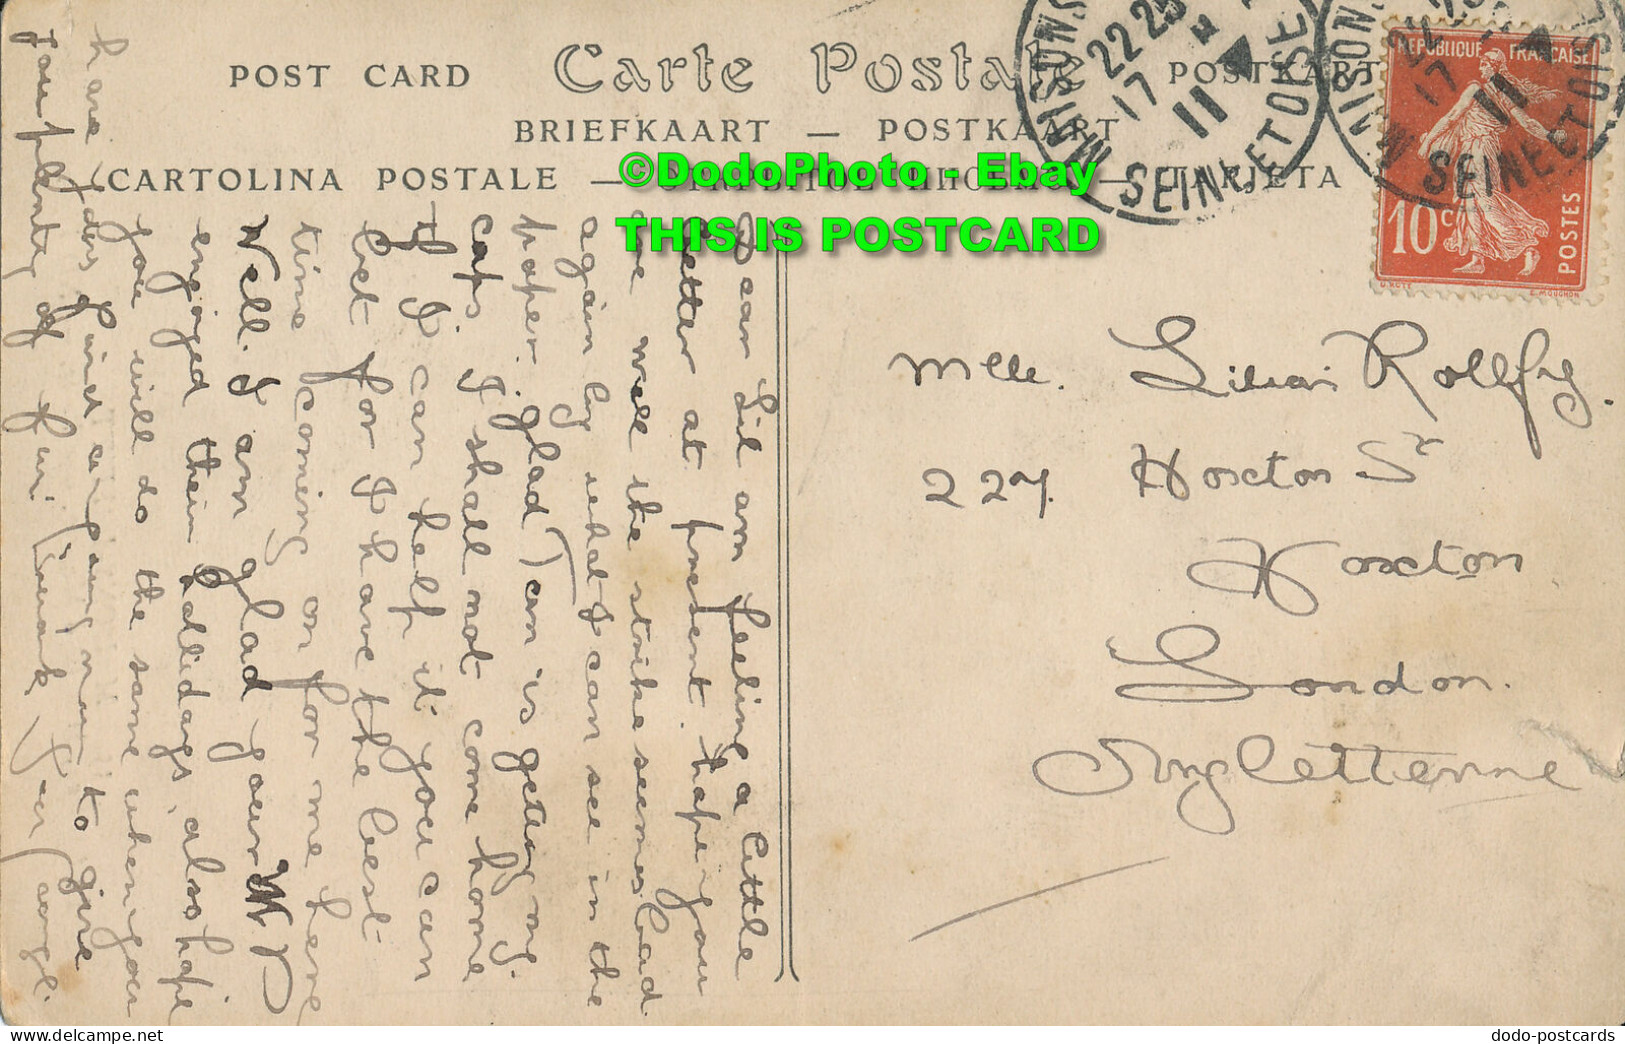 POST CARD Carte Postale POSTKARTE
BRIEFKAART — POSTKAART
CARTOLINA POSTALE — TARJETA
©DodoPhoto - Ebay
THIS IS POSTCARD
MAISONS
22 25
17
11
SEINE ET OISE
MAISONS
22 25
17
11
SEINE ET OISE
REPUBLIQUE FRANÇAISE
10c
POSTES
O. ROTY
E. MOUCHON
Mlle. Lilian
227. Hoxton St
Hoxton
London.
Angletterre
Dear Lil am feeling a little
better at present. hope you
are well the strike seemes bad
again by what I can see in the
paper. glad Tom is geting my
caps, I shall not come home
if I can help it you can
bet for I have the best
time coming on for me here
Well. I am glad your M P
enjoyed their holidays, also hope
you will do the same when you
have yours,
you plenty of fun
dodo-postcards